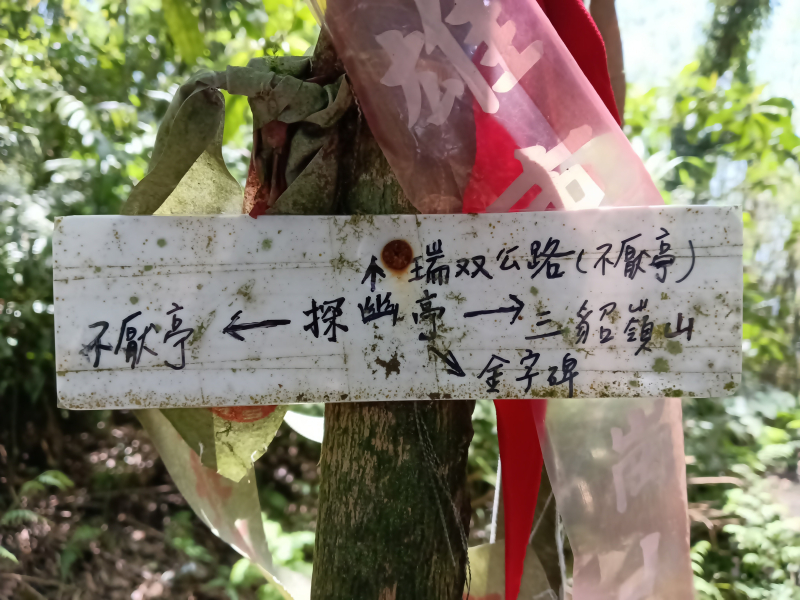 ↑瑞双公路(不厭亭)
不厭亭 ← 探幽亭 → 三貂嶺山
↘金字碑